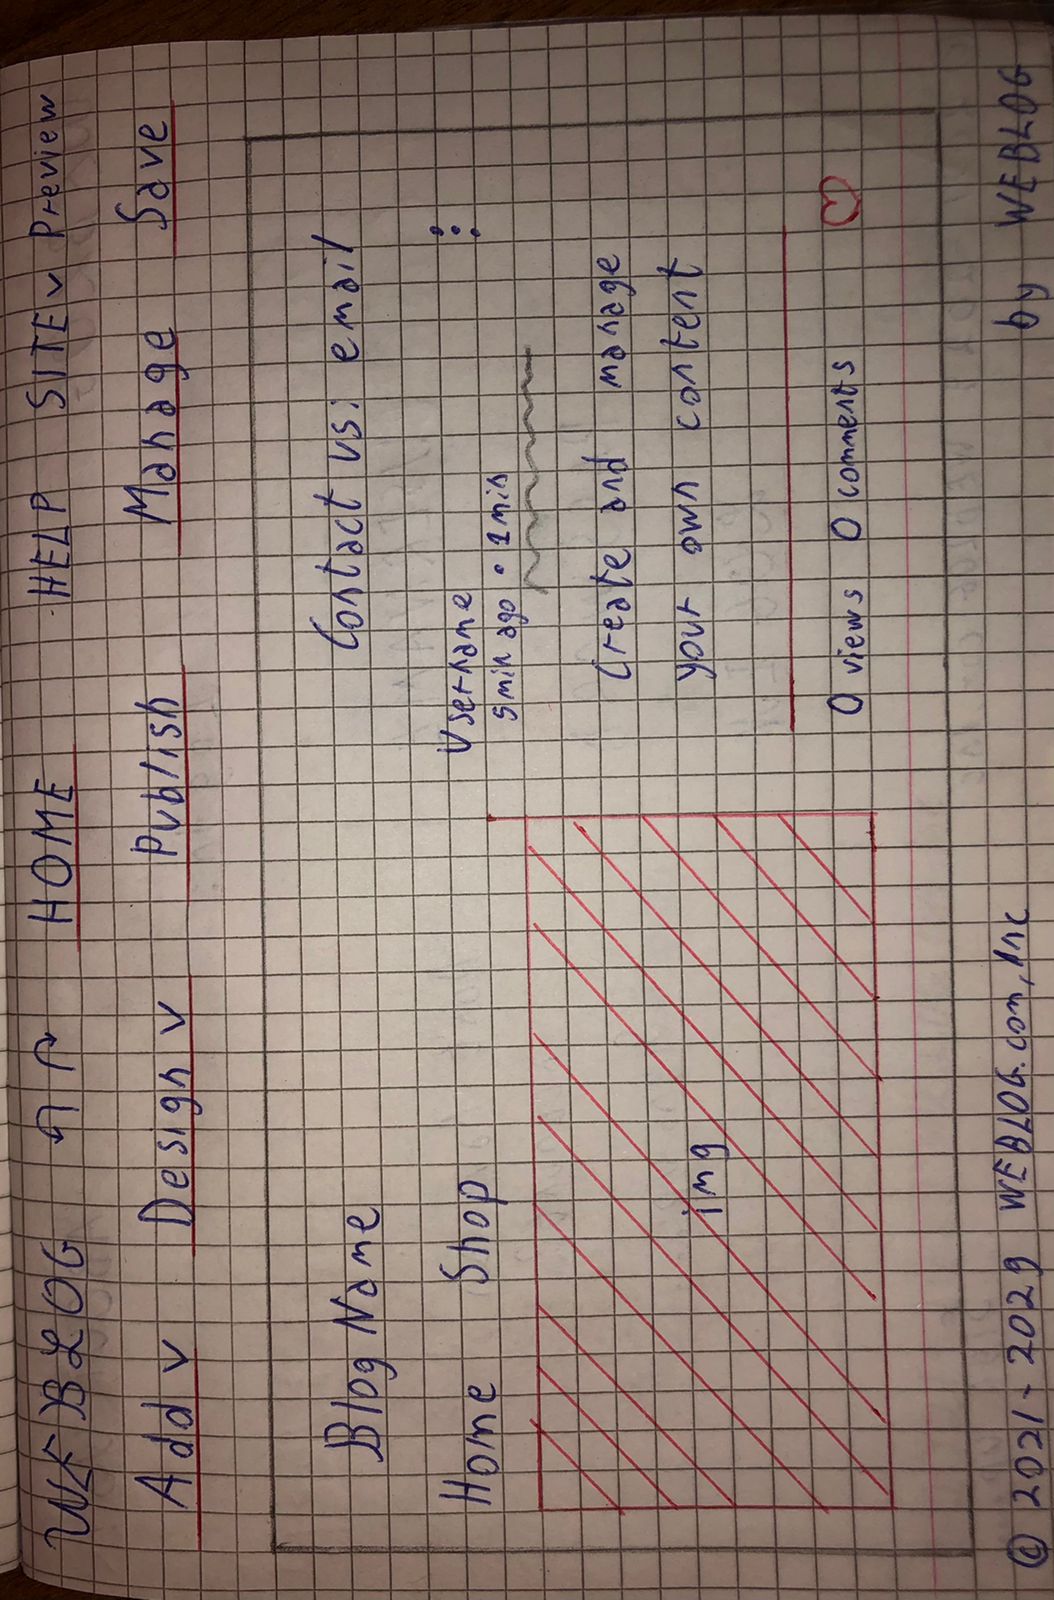 WEBLOG HOME HELP SITE Preview
Add Design Publish Manage Save
Blog Name Contact us: email
Home Shop
Username
5 min ago • 1 min
img
Create and manage
your own content
0 views 0 comments
© 2021-2029 WEBLOG.com, Inc by WEBLOG